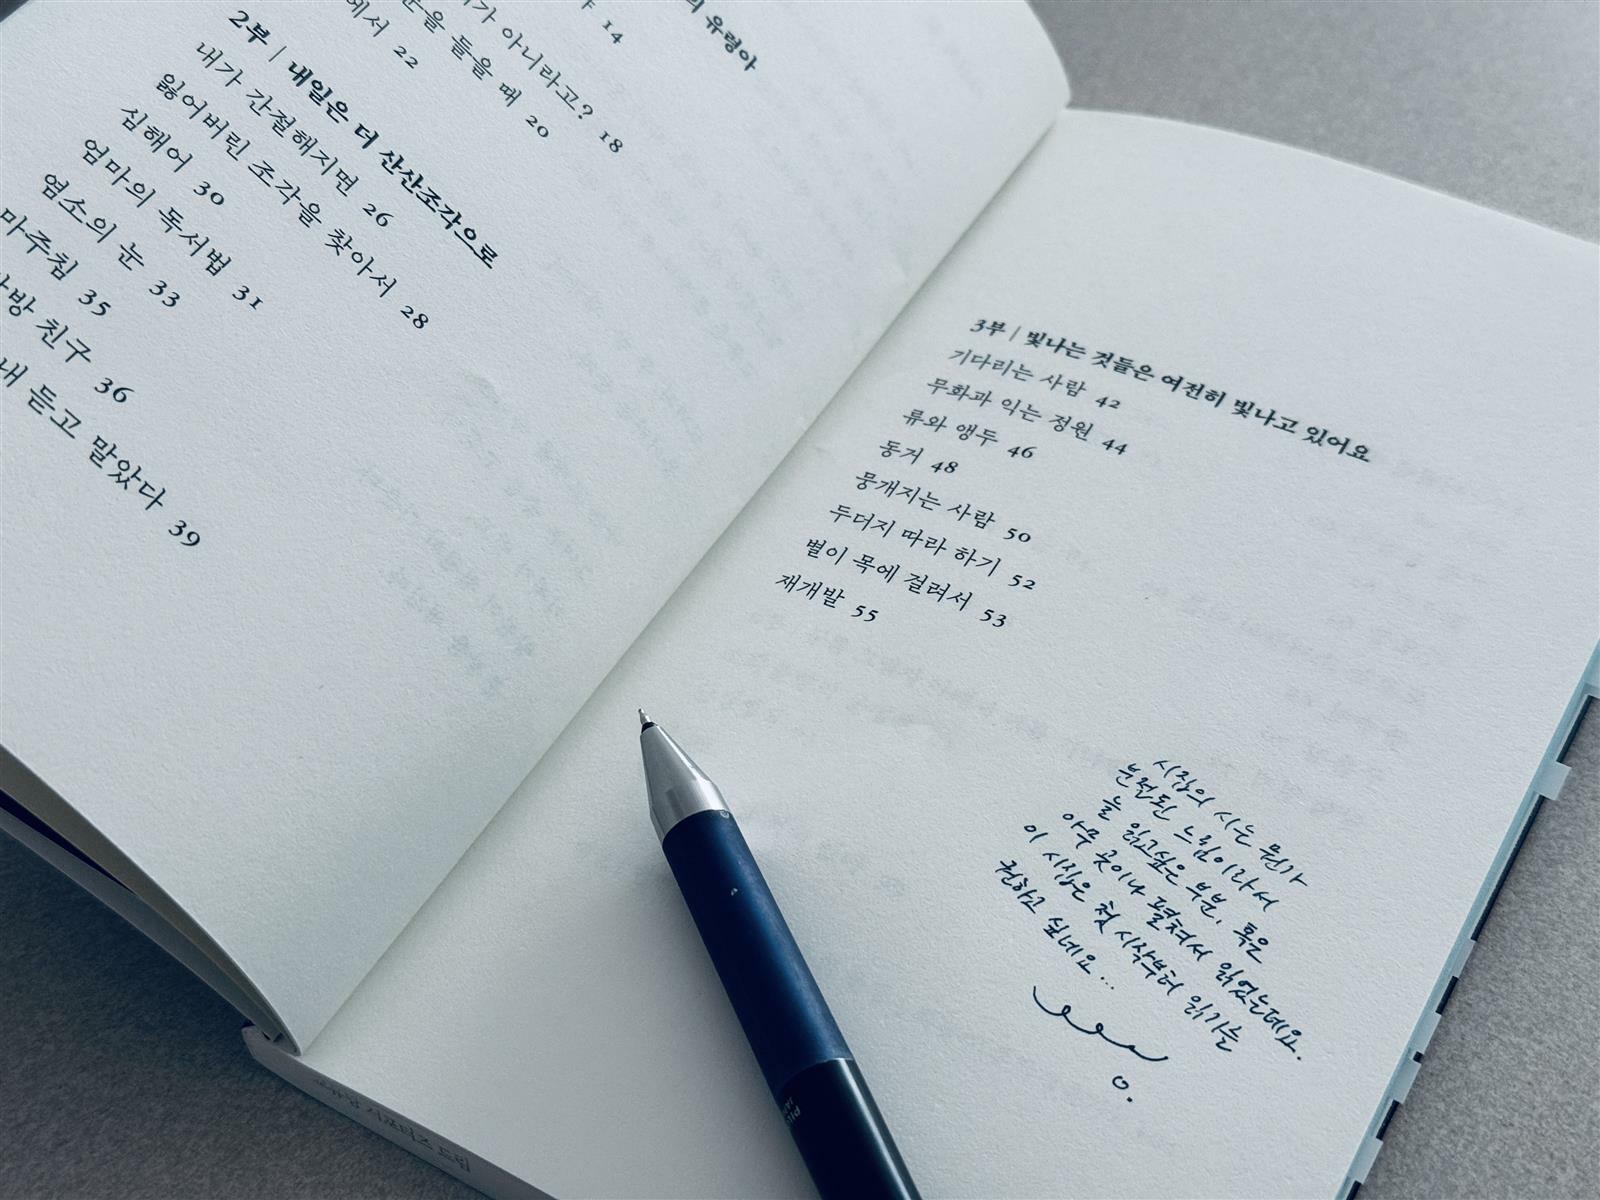 유령아
14
아니라고? 18
들을 때 20
에서 22
2부 | 내일은 더 산산조각으로
내가 간절해지면 26
잃어버린 조각을 찾아서 28
심해어 30
엄마의 독서법 31
염소의 눈 33
마주침 35
방 친구 36
내 듣고 말았다 39
3부 | 빛나는 것들은 여전히 빛나고 있어요
기다리는 사람 42
무화과 익는 정원 44
류와 앵두 46
동거 48
뭉개지는 사람 50
두더지 따라 하기 52
별이 목에 걸려서 53
재개발 55
시집의 시는 뭔가
분절된 느낌이라서
늘 읽고싶은 부분, 혹은
아무 곳이나 펼쳐서 읽었는데요.
이 시집은 첫 시작부터 읽기를
권하고 싶네요...
o.